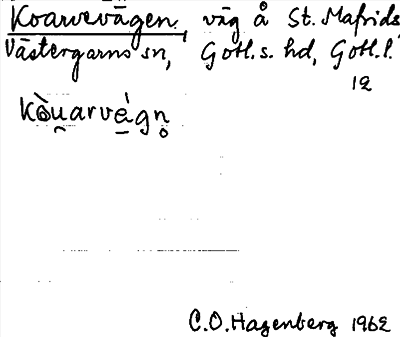 Koarvevägen, väg å St. Mafrids,
Västergarns sn, Gotl. s. hd, Gotl. l.
12
kòu̯arvè̠gn̥
C.O. Hagenberg 1962